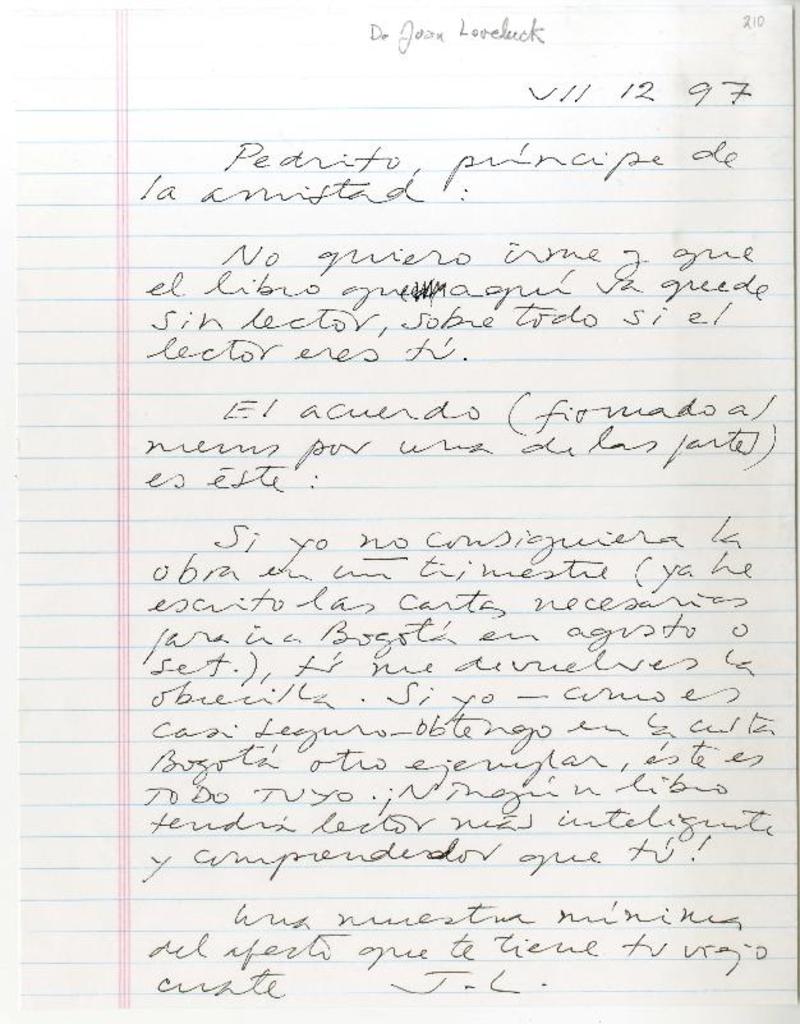 De Juan Loveluck
210
VII 12 97
Pedrito, príncipe de
la amistad :
No quiero irme y que
el libro que aquí va quede
sin lector, sobre todo si el
lector eres tú.
El acuerdo (firmado al
menos por una de las partes)
es éste :
Si yo no consiguiera la
obra en un trimestre (ya he
escrito las cartas necesarias
para ir a Bogotá en agosto o
set.), tú me devuelves la
obrecilla. Si yo — como es
casi seguro — obtengo en la culta
Bogotá otro ejemplar, éste es
TODO TUYO. ¡Ningún libro
tendrá lector más inteligente
y comprendedor que tú!
Una muestra mínima
del afecto que te tiene tu viejo
cuate J. L.